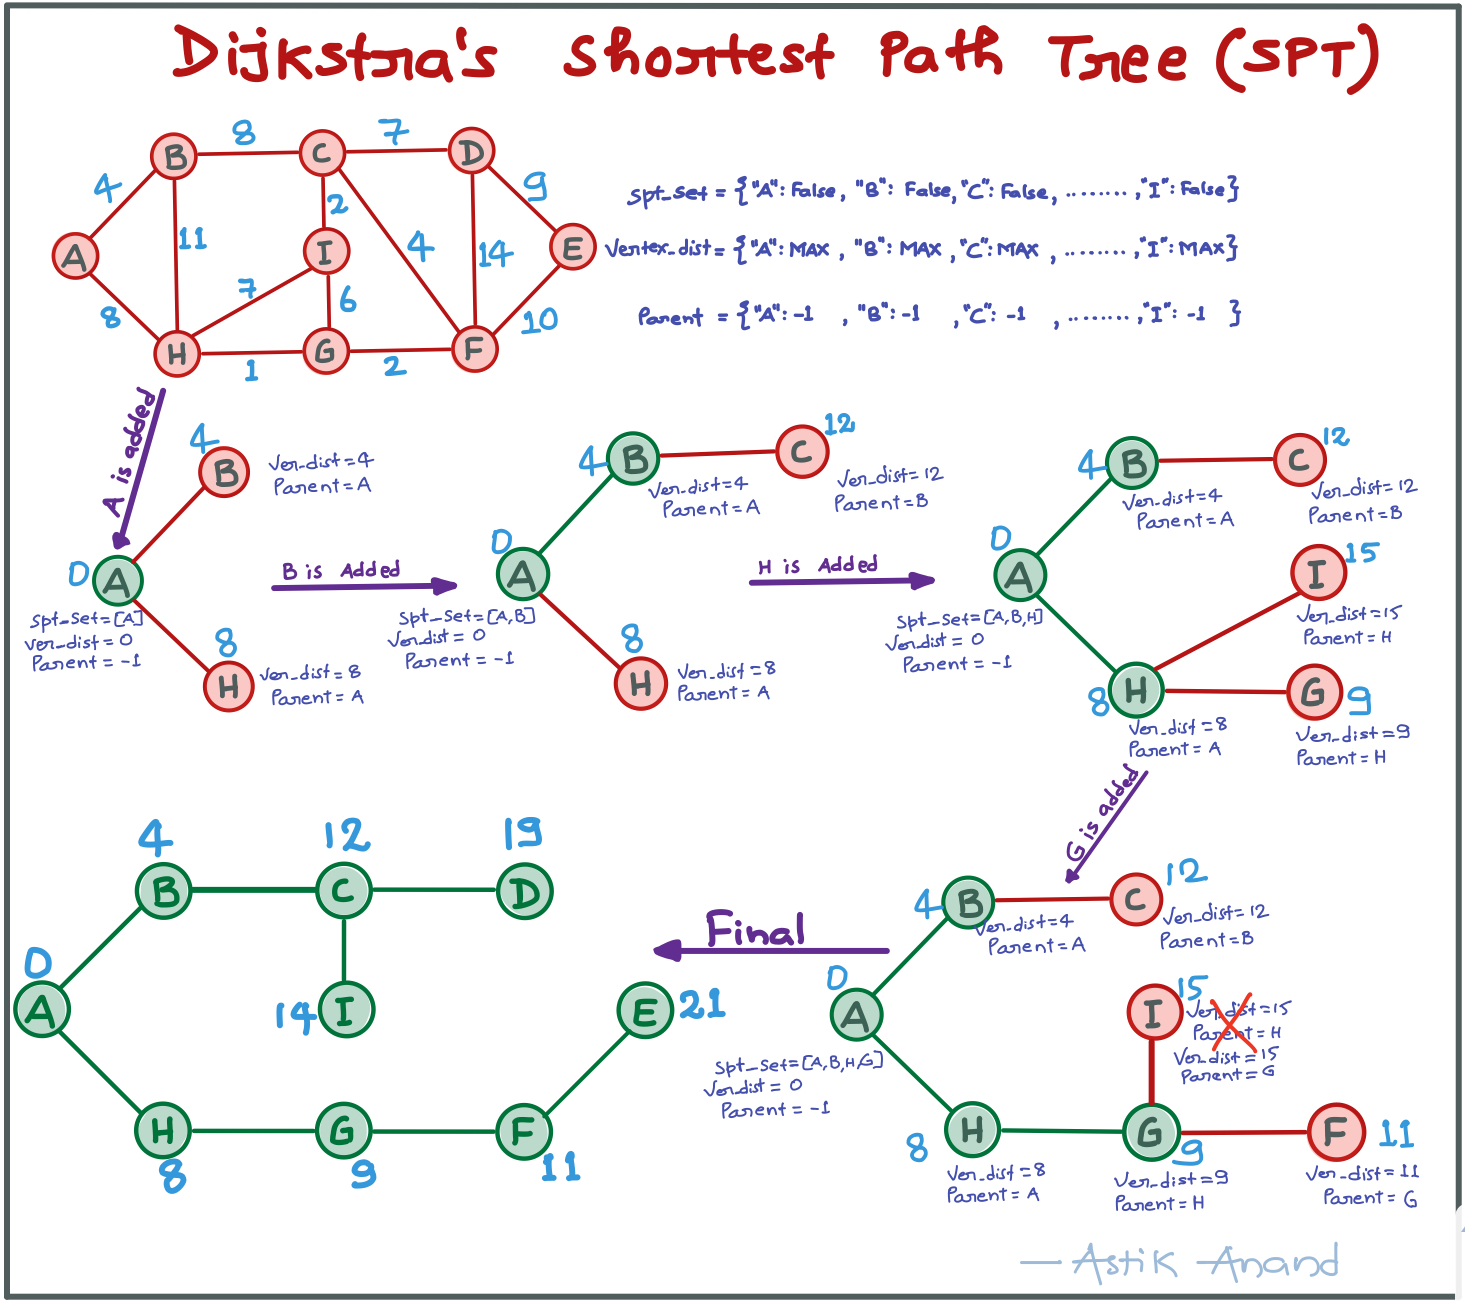 Dijkstra's Shortest Path Tree (SPT)
8 7
B C D
4 9
2
11 4 14
A I E
7
6
8 10
H G F
1 2
Spt_set = {"A": False, "B": False, "C": False, ........, "I": False}
Vertex_dist = {"A": MAX, "B": MAX, "C": MAX, ........, "I": MAX}
Parent = {"A": -1, "B": -1, "C": -1, ........, "I": -1}
A is added
4
B
Ver_dist = 4
Parent = A
0
A
Spt_Set = [A]
Ver_dist = 0
Parent = -1
8
H
Ver_dist = 8
Parent = A
B is Added
4
B
Ver_dist = 4
Parent = A
12
C
Ver_dist = 12
Parent = B
0
A
Spt_Set = [A,B]
Ver_dist = 0
Parent = -1
8
H
Ver_dist = 8
Parent = A
H is Added
4
B
Ver_dist = 4
Parent = A
12
C
Ver_dist = 12
Parent = B
0
A
Spt_Set = [A,B,H]
Ver_dist = 0
Parent = -1
15
I
Ver_dist = 15
Parent = H
8
H
Ver_dist = 8
Parent = A
G
9
Ver_dist = 9
Parent = H
G is added
4
B
Ver_dist = 4
Parent = A
12
C
Ver_dist = 12
Parent = B
0
A
Spt_Set = [A,B,H,G]
Ver_dist = 0
Parent = -1
15
I
Ver_dist = 15
Parent = H
Ver_dist = 15
Parent = G
8
H
Ver_dist = 8
Parent = A
G
9
Ver_dist = 9
Parent = H
F
11
Ver_dist = 11
Parent = G
Final
4 12 19
B C D
0
A
14 I
E 21
H G F
8 9 11
— Astik Anand